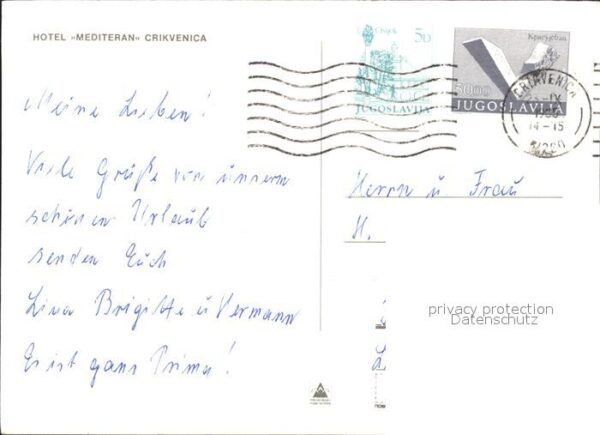 HOTEL »MEDITERAN« CRIKVENICA
5D
JUGOSLAVIJA
Крагујевац
50.00
JUGOSLAVIJA
CRIKVENICA
IX
14-15
Meine Lieben!
Viele Grüße von unserem
schönen Urlaub
senden Euch
Lina Brigitte u Hermann
Es ist ganz Prima!
Herrn u Frau
H.
privacy protection
Datenschutz